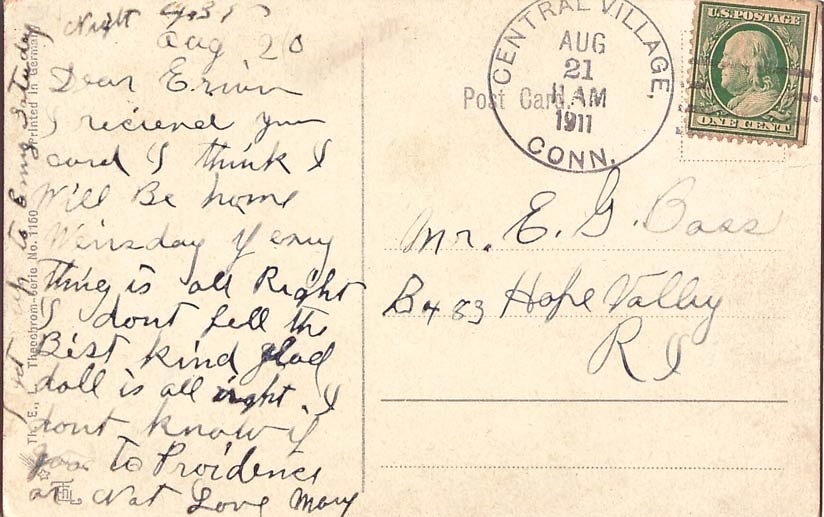 Night
Aug 20
Dear Erwin
I reciened your
card I think I
Will Be home
Wensday if eny
thing is all Right
I dont fell the
Best kind glad
doll is all right. I
dont know if
to Providence
or Not Love Mary
up to Saturday
Printed in Germany
Theochrom-Serie No. 1150
Post Card.
CENTRAL VILLAGE,
AUG
21
11 AM
1911
CONN.
U.S. POSTAGE
ONE CENT
Mr. E. G. Bass
Bx 83 Hope Valley
R I